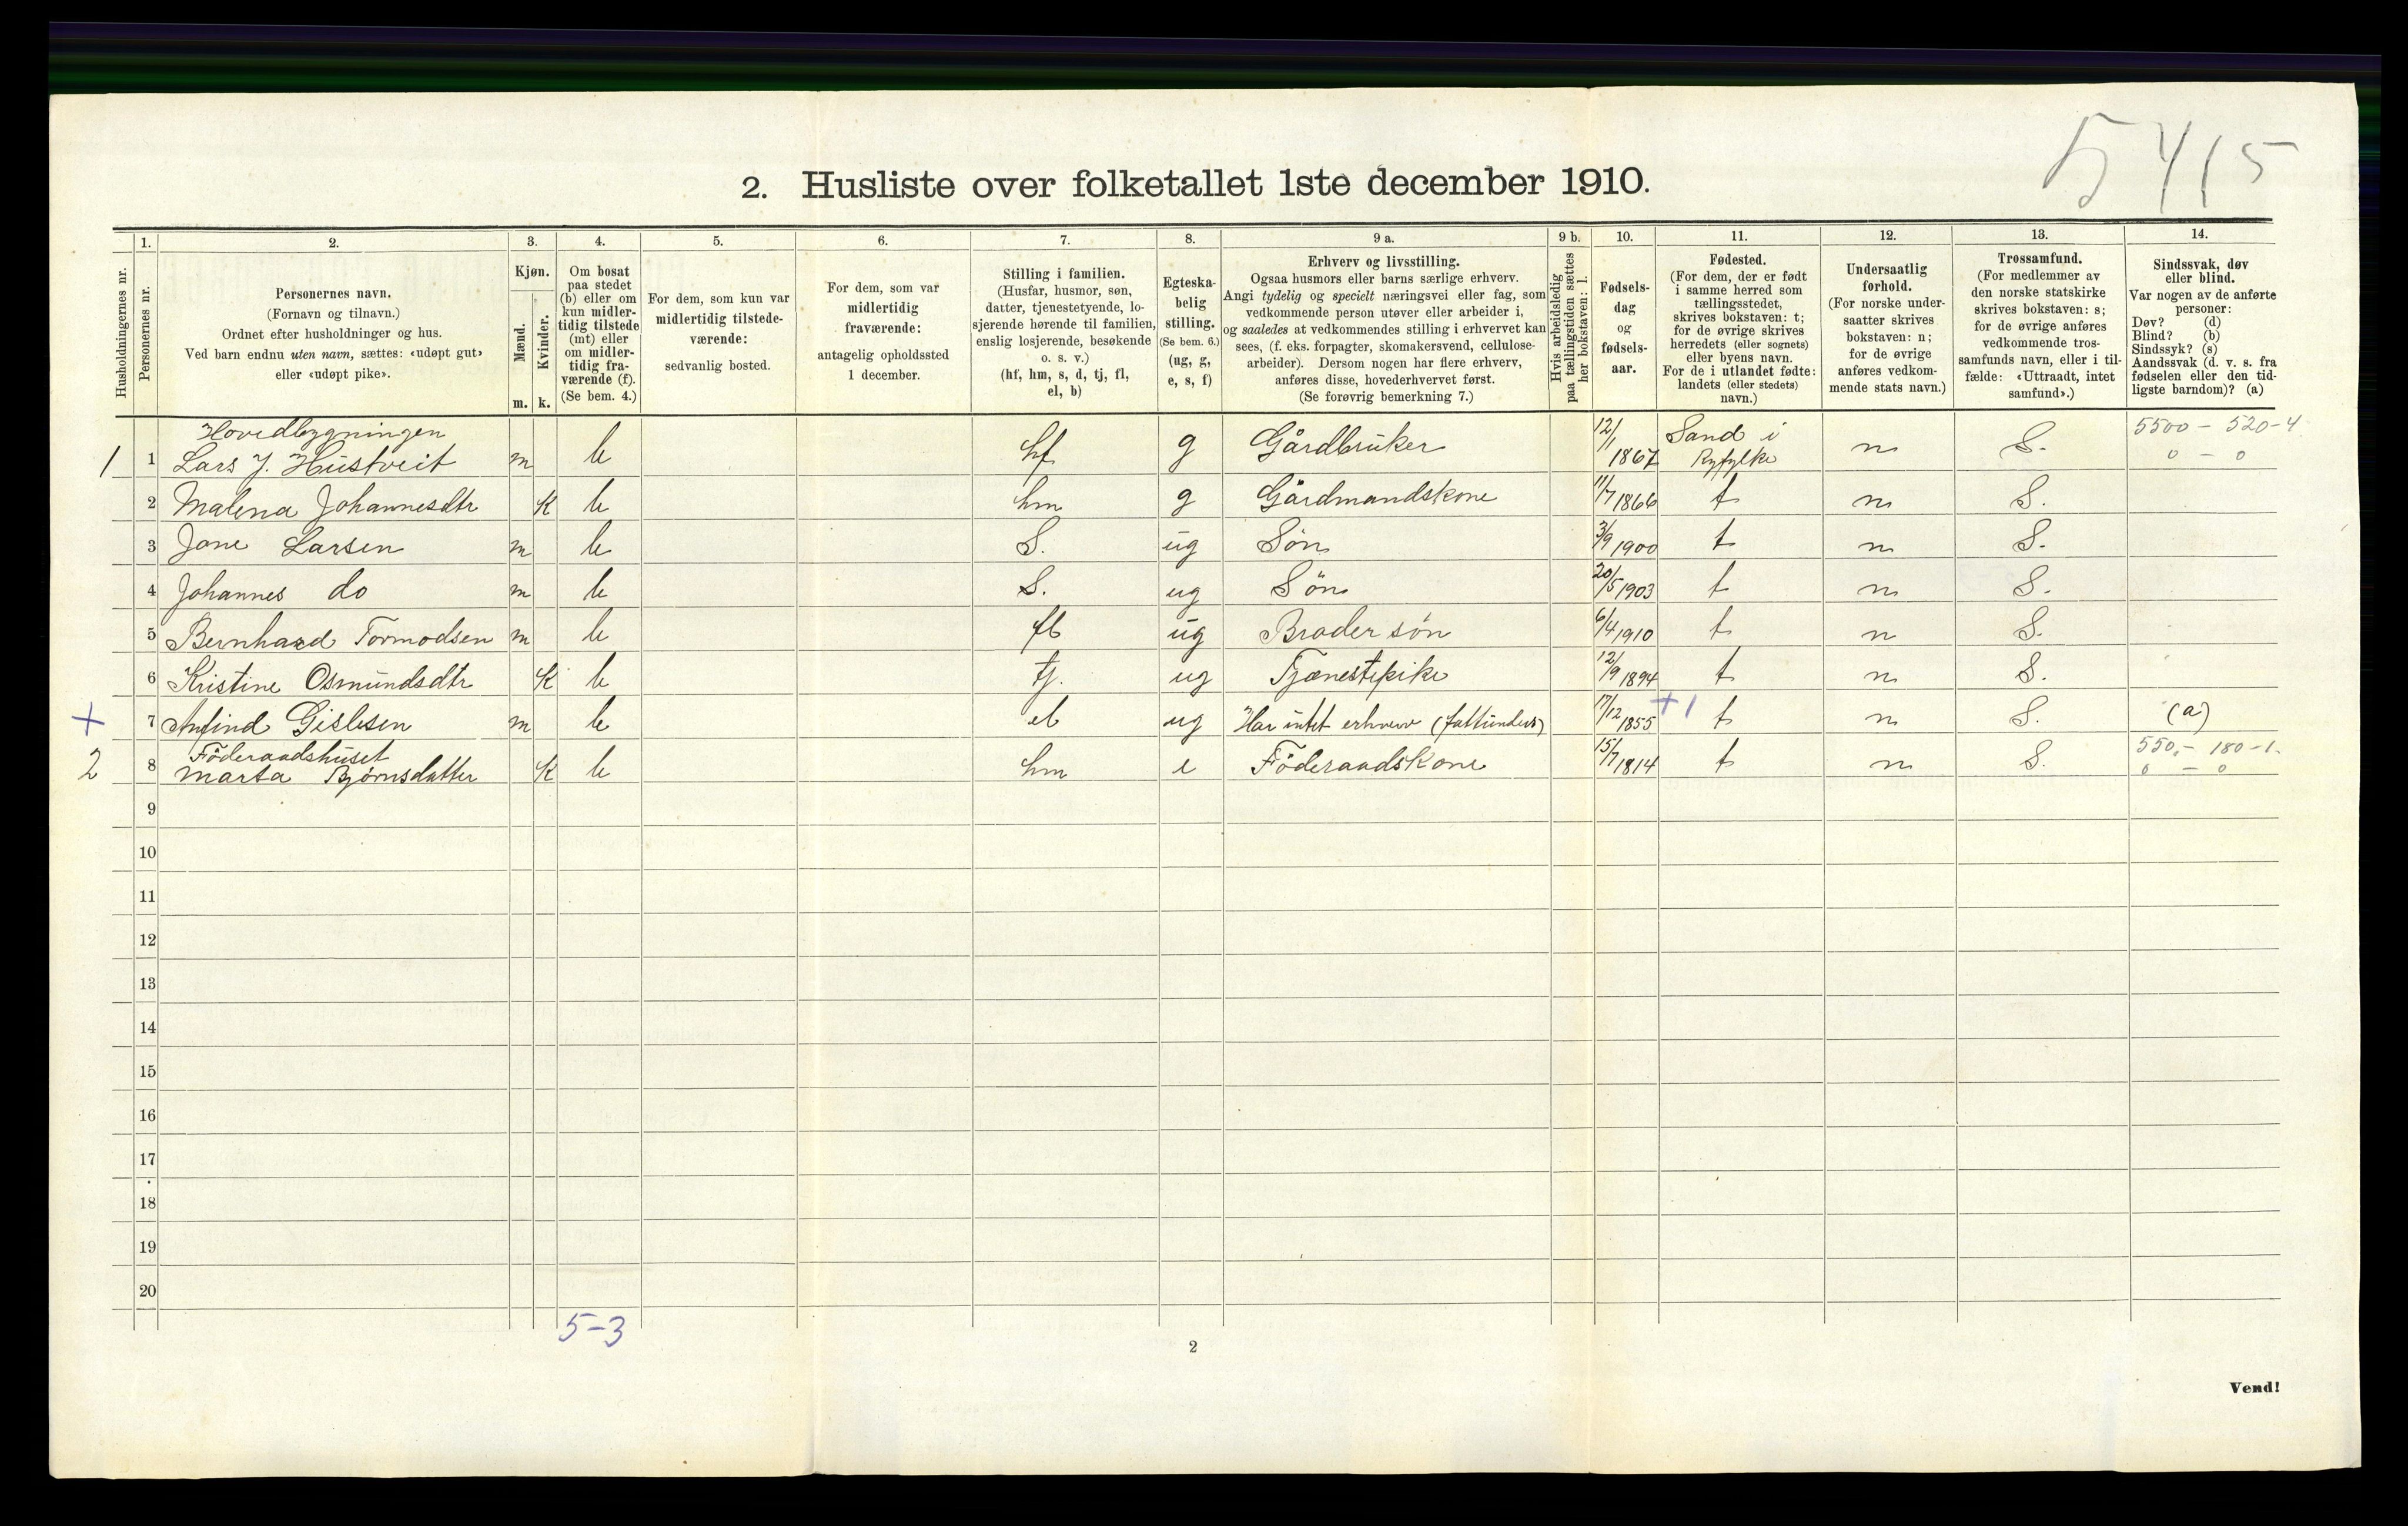 5415
2. Husliste over folketallet 1ste december 1910.
Husholdningernes nr.
1.
Personernes nr.
2.
Personernes navn.
(Fornavn og tilnavn.)
Ordnet efter husholdninger og hus.
Ved barn endnu uten navn, sættes: «udøpt gut»
eller «udøpt pike».
3.
Kjøn.
Mænd.
Kvinder.
m. k.
4.
Om bosat
paa stedet
(b) eller om
kun midler-
tidig tilstede
(mt) eller
om midler-
tidig fra-
værende (f).
(Se bem. 4.)
5.
For dem, som kun var
midlertidig tilstede-
værende:
sedvanlig bosted.
6.
For dem, som var
midlertidig
fraværende:
antagelig opholdssted
1 december.
7.
Stilling i familien.
(Husfar, husmor, søn,
datter, tjenestetyende, lo-
sjerende hørende til familien,
enslig losjerende, besøkende
o. s. v.)
(hf, hm, s, d, tj, fl,
el, b)
8.
Egteska-
belig
stilling.
(Se bem. 6.)
(ug, g,
e, s, f)
9 a.
Erhverv og livsstilling.
Ogsaa husmors eller barns særlige erhverv.
Angi tydelig og specielt næringsvei eller fag, som
vedkommende person utøver eller arbeider i,
og saaledes at vedkommendes stilling i erhvervet kan
sees, (f. eks. forpagter, skomakersvend, cellulose-
arbeider). Dersom nogen har flere erhverv,
anføres disse, hovederhvervet først.
(Se forøvrig bemerkning 7.)
9 b.
Hvis arbeidsledig
paa tællingstiden sættes
her bokstaven: l.
10.
Fødsels-
dag
og
fødsels-
aar.
11.
Fødested.
(For dem, der er født
i samme herred som
tællingsstedet,
skrives bokstaven: t;
for de øvrige skrives
herredets (eller sognets)
eller byens navn.
For de i utlandet fødte:
landets (eller stedets)
navn.)
12.
Undersaatlig
forhold.
(For norske under-
saatter skrives
bokstaven: n;
for de øvrige
anføres vedkom-
mende stats navn.)
13.
Trossamfund.
(For medlemmer av
den norske statskirke
skrives bokstaven: s;
for de øvrige anføres
vedkommende tros-
samfunds navn, eller i til-
fælde: «Uttraadt, intet
samfund».)
14.
Sindssvak, døv
eller blind.
Var nogen av de anførte
personer:
Døv? (d)
Blind? (b)
Sindssyk? (s)
Aandssvak (d. v. s. fra
fødselen eller den tid-
ligste barndom)? (a)
Hovedbygningen
1 1 Lars J. Hustveit m b hf g Gårdbruker 12/1 1867 Sand i Ryfylke n S. 5500 - 520-4 0 - 0
2 Malena Johannesdtr K b hm g Gårdmandskone 11/7 1866 t n S.
3 Jone Larsen m b S. ug Søn 3/9 1900 t n S.
4 Johannes do m b S. ug Søn 20/5 1903 t n S.
5 Bernhard Tormodsen m b fl ug Broder søn 6/4 1910 t n S.
6 Kristine Osmundsdtr K b tj. ug Tjænestepike 12/9 1894 t n S.
+ 7 Anfind Gislesen m b el ug Har intet erhverv (fattunders) 17/12 1855 +1 t n S. (a)
Föderaadshuset
2 8 Marta Bjørnsdatter K b hm e Föderaadskone 15/7 1814 t n S. 550,- 180-1. 0 - 0
9
10
11
12
13
14
15
16
17
18
19
20
5-3
2
Vend!